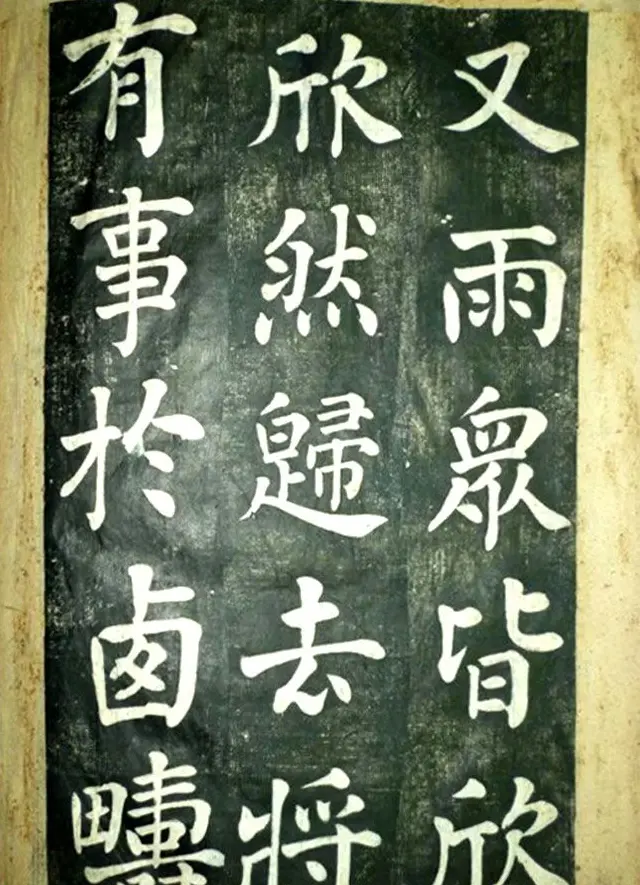 又雨衆皆欣
欣然歸去將
有事於卥疇